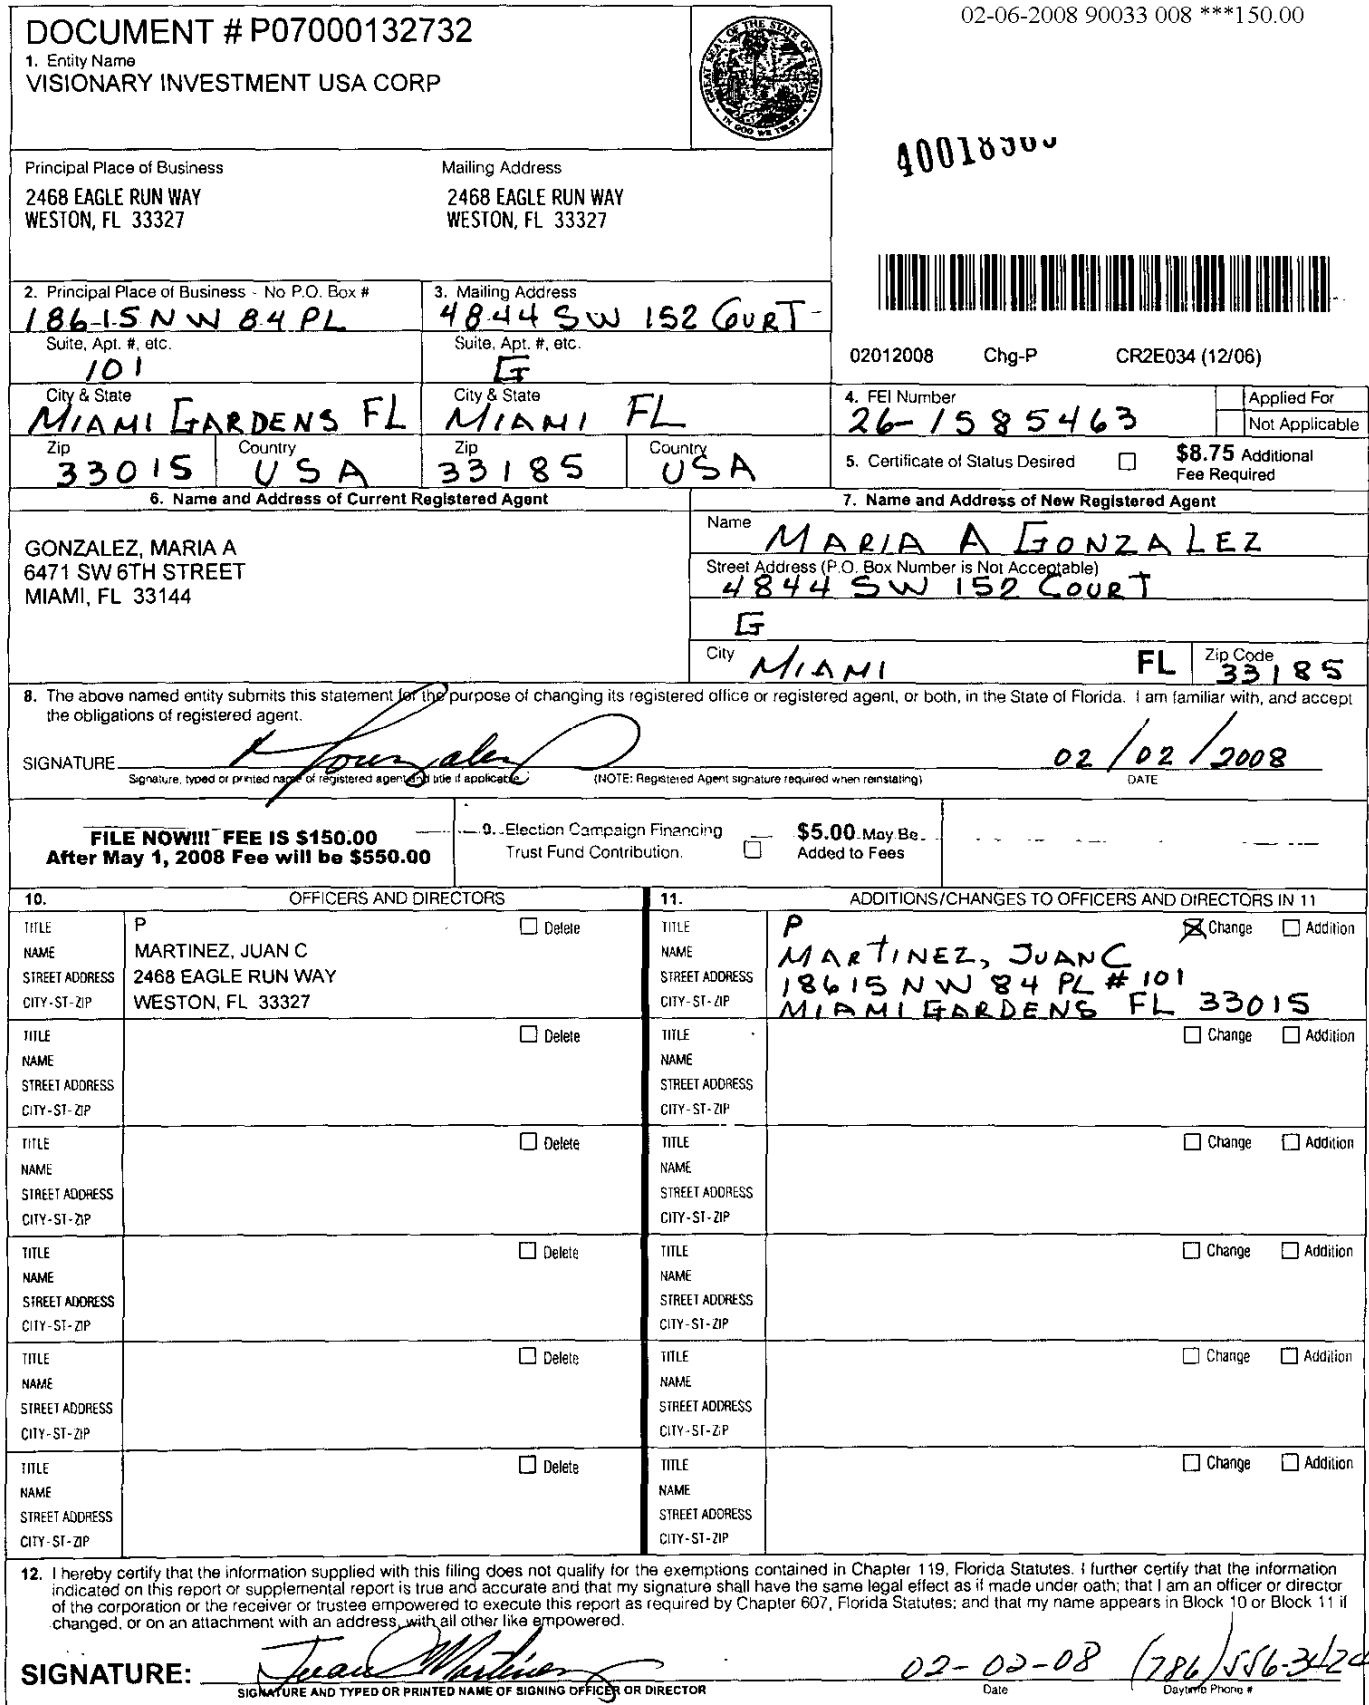 02-06-2008 90033 008 ***150.00
DOCUMENT # P07000132732
1. Entity Name
VISIONARY INVESTMENT USA CORP
GREAT SEAL OF THE STATE OF FLORIDA
IN GOD WE TRUST
Principal Place of Business
2468 EAGLE RUN WAY
WESTON, FL 33327
Mailing Address
2468 EAGLE RUN WAY
WESTON, FL 33327
2. Principal Place of Business - No P.O. Box #
18615 NW 84 PL
Suite, Apt. #, etc.
101
City & State
MIAMI GARDENS FL
Zip
33015
Country
USA
3. Mailing Address
4844 SW 152 COURT
Suite, Apt. #, etc.
G
City & State
MIAMI FL
Zip
33185
Country
USA
02012008 Chg-P CR2E034 (12/06)
4. FEI Number
26-1585463
Applied For
Not Applicable
5. Certificate of Status Desired
$8.75 Additional
Fee Required
6. Name and Address of Current Registered Agent
GONZALEZ, MARIA A
6471 SW 6TH STREET
MIAMI, FL 33144
7. Name and Address of New Registered Agent
Name MARIA A GONZALEZ
Street Address (P.O. Box Number is Not Acceptable)
4844 SW 152 COURT
G
City MIAMI FL Zip Code 33185
8. The above named entity submits this statement for the purpose of changing its registered office or registered agent, or both, in the State of Florida. I am familiar with, and accept
the obligations of registered agent.
SIGNATURE Gonzalez 02/02/2008
Signature, typed or printed name of registered agent and title if applicable. (NOTE: Registered Agent signature required when reinstating) DATE
FILE NOW!!! FEE IS $150.00
After May 1, 2008 Fee will be $550.00
9. Election Campaign Financing
Trust Fund Contribution.
$5.00 May Be
Added to Fees
10. OFFICERS AND DIRECTORS
TITLE P Delete
NAME MARTINEZ, JUAN C
STREET ADDRESS 2468 EAGLE RUN WAY
CITY-ST-ZIP WESTON, FL 33327
TITLE Delete
NAME
STREET ADDRESS
CITY-ST-ZIP
TITLE Delete
NAME
STREET ADDRESS
CITY-ST-ZIP
TITLE Delete
NAME
STREET ADDRESS
CITY-ST-ZIP
TITLE Delete
NAME
STREET ADDRESS
CITY-ST-ZIP
TITLE Delete
NAME
STREET ADDRESS
CITY-ST-ZIP
11. ADDITIONS/CHANGES TO OFFICERS AND DIRECTORS IN 11
TITLE P Change Addition
NAME MARTINEZ, JUAN C
STREET ADDRESS 18615 NW 84 PL # 101
CITY-ST-ZIP MIAMI GARDENS FL 33015
TITLE Change Addition
NAME
STREET ADDRESS
CITY-ST-ZIP
TITLE Change Addition
NAME
STREET ADDRESS
CITY-ST-ZIP
TITLE Change Addition
NAME
STREET ADDRESS
CITY-ST-ZIP
TITLE Change Addition
NAME
STREET ADDRESS
CITY-ST-ZIP
TITLE Change Addition
NAME
STREET ADDRESS
CITY-ST-ZIP
12. I hereby certify that the information supplied with this filing does not qualify for the exemptions contained in Chapter 119, Florida Statutes. I further certify that the information
indicated on this report or supplemental report is true and accurate and that my signature shall have the same legal effect as if made under oath; that I am an officer or director
of the corporation or the receiver or trustee empowered to execute this report as required by Chapter 607, Florida Statutes; and that my name appears in Block 10 or Block 11 if
changed, or on an attachment with an address, with all other like empowered.
SIGNATURE: Juan Martinez 02-02-08 (786)556-3424
SIGNATURE AND TYPED OR PRINTED NAME OF SIGNING OFFICER OR DIRECTOR Date Daytime Phone #